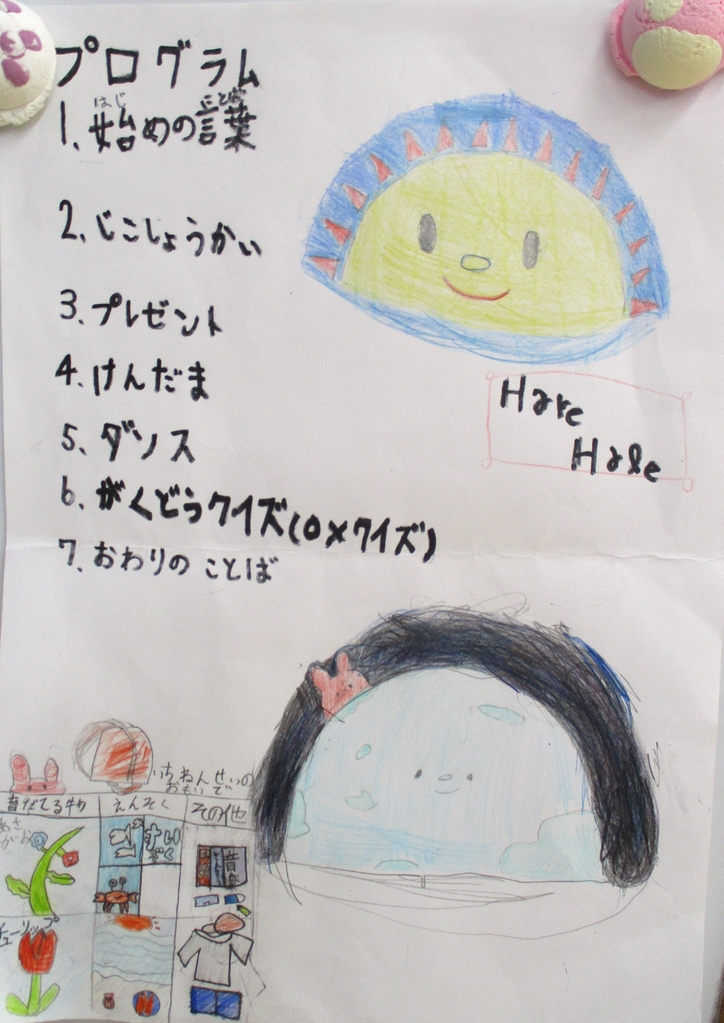 プログラム
はじ ことば
1. 始めの言葉
2. じこしょうかい
3. プレゼント
4. けんだま
5. ダンス
6. がくどうクイズ(○×クイズ)
7. おわりの ことば
Hare
Hale
いちねんせいの
おもいで
育だてる物
えんそく
その他
あさ
がお
すい
ぞく
音楽
チューリップ